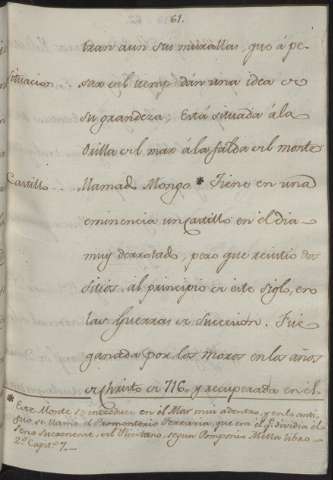 61.
tran aun sus murallas, que á pe=
Situacion
sar del temp. dan una idea de
su grandeza. Está situada á la
Orilla del mar á la falda del monte
Castillo
llamad Mongo * Tiene en una
eminencia un castillo en el dia
muy derrotado, pero que resistio dos
sitios al principio de este siglo, en
las Guerras de Sucesion. Fue
ganada por los Moros en los años
de Christo de 716. y recuperada en el
* Este Monte se introduce en el Mar mui adentro, y en lo anti-
guo se llamó el Promontorio Ferraria, que era el q.e dividia el
Seno Sucronense, del Ilicitano, segun Pomponio Mella libro
2.º Capit.º 7